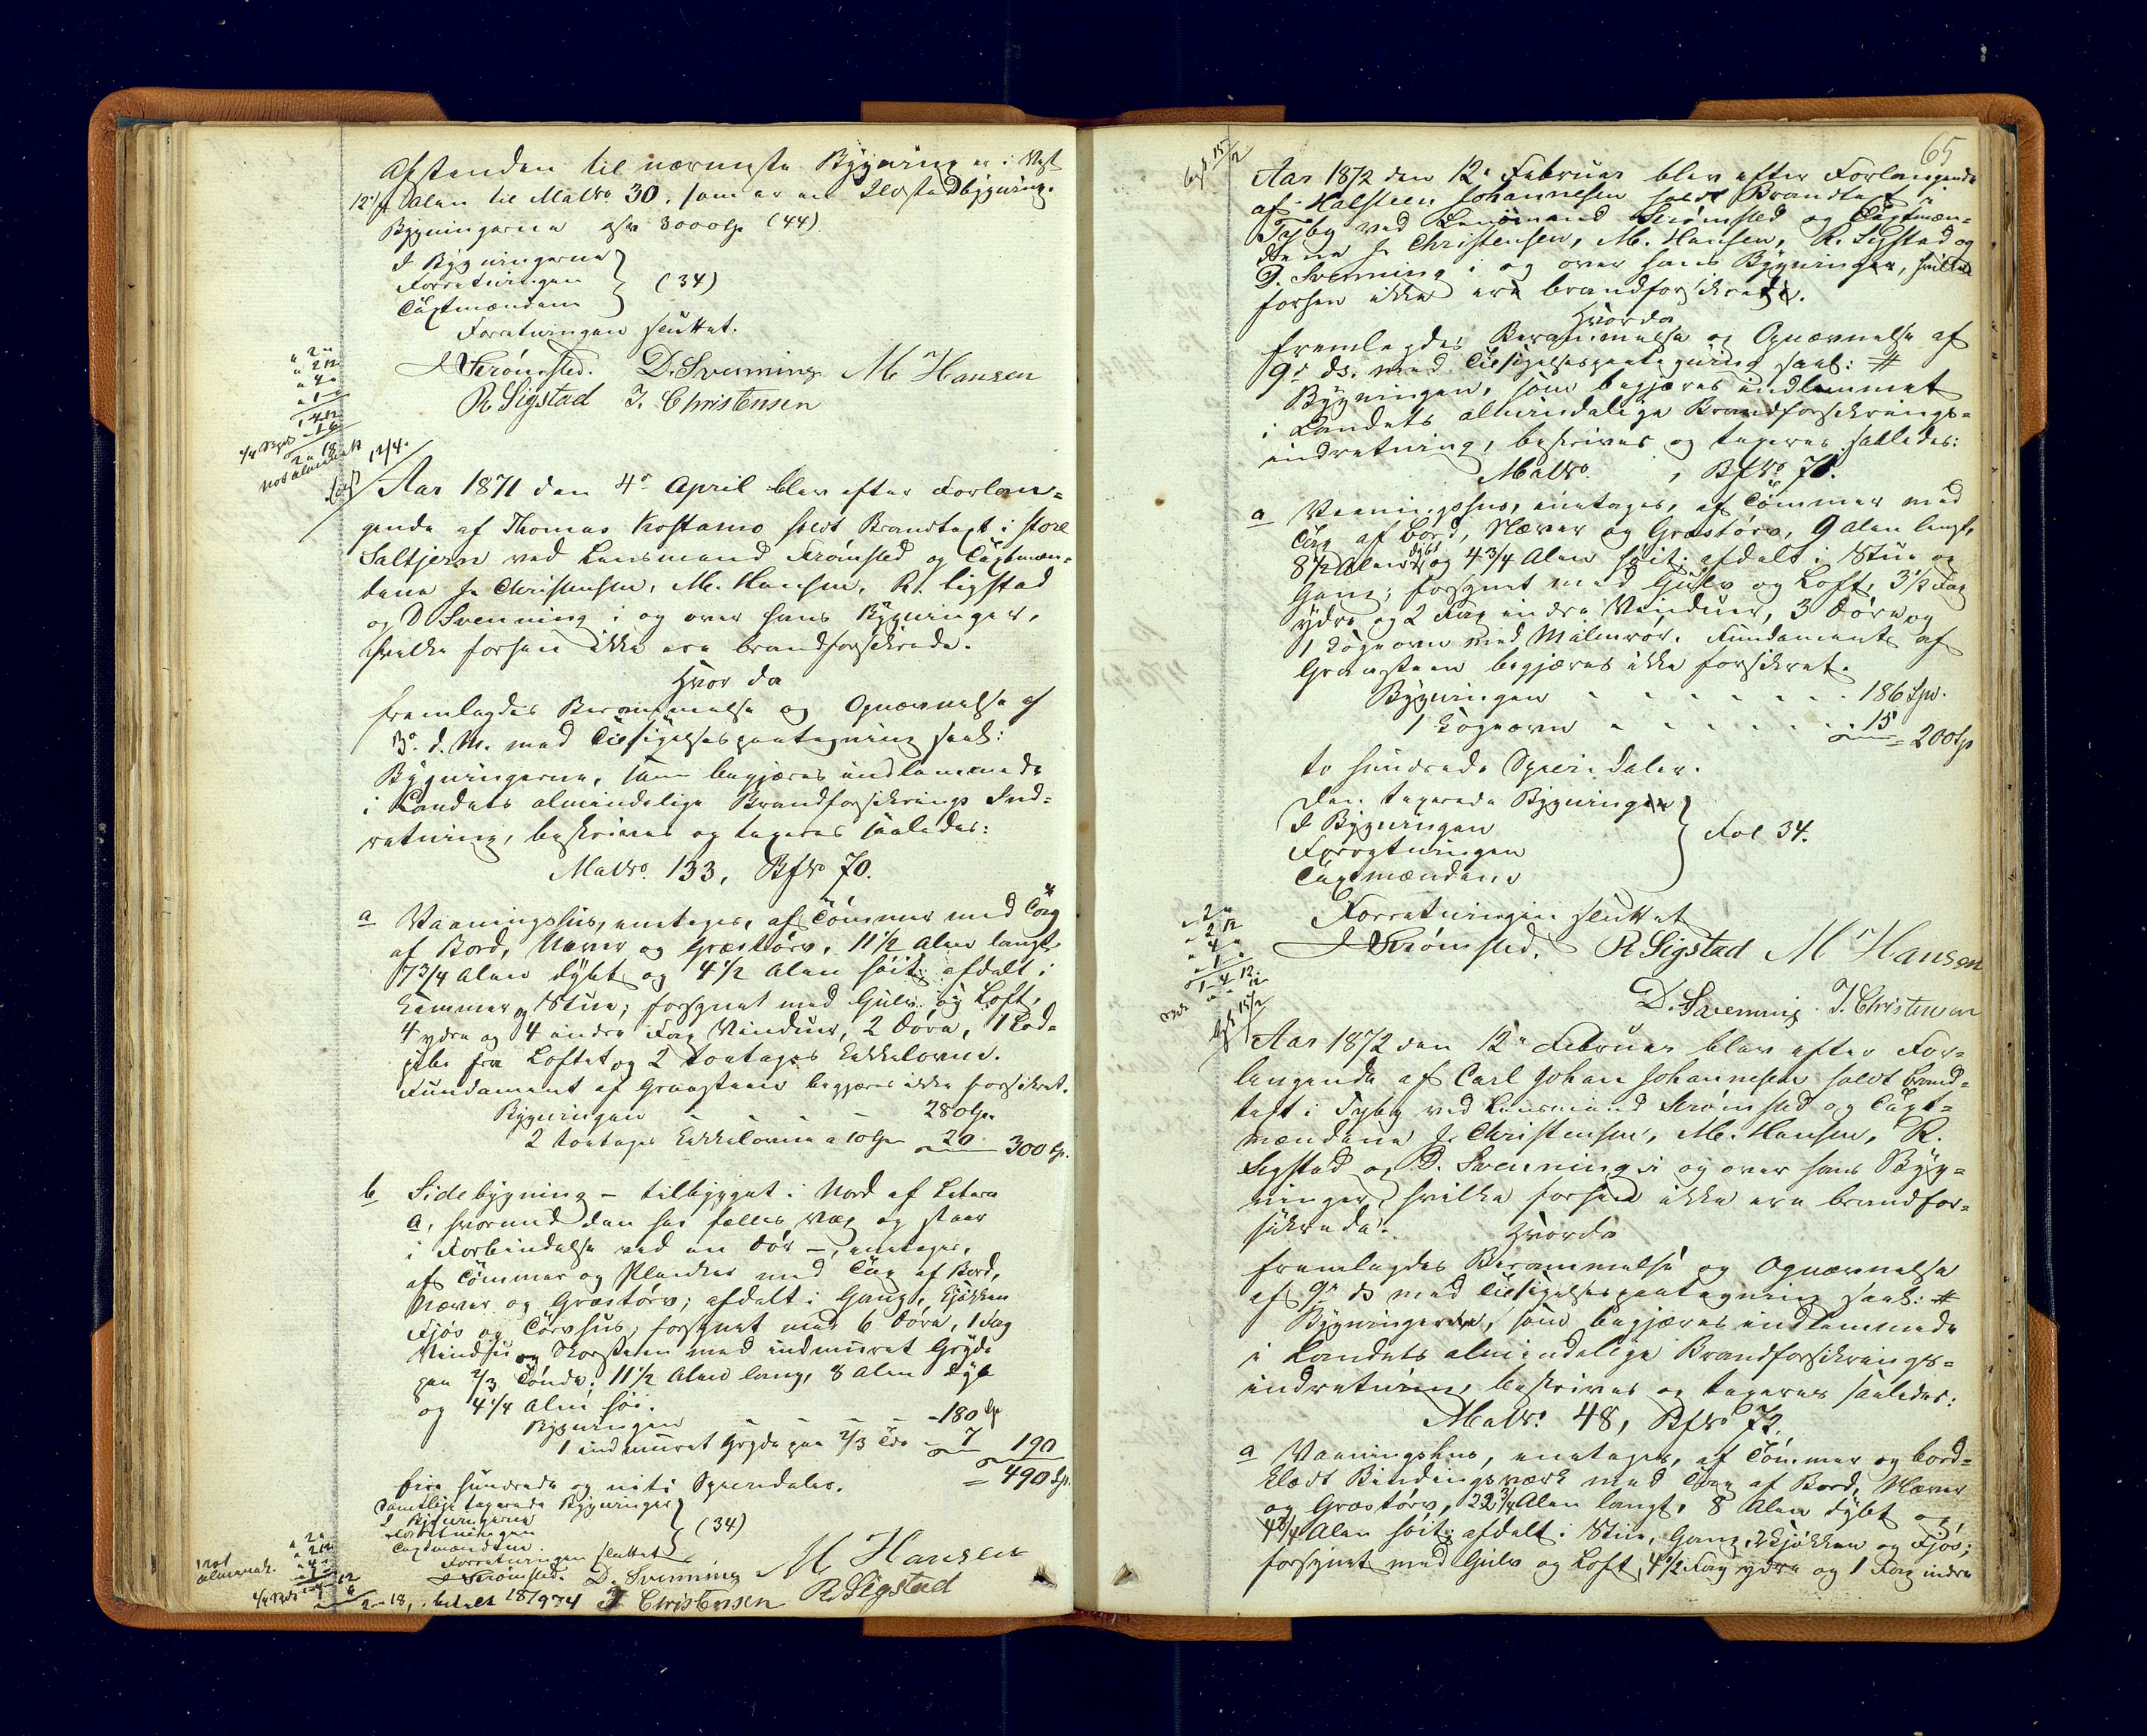 Afstanden til nærmeste Bygning er i Vest
12½ Alen til Matr№ 30, som er en Ildstedbygning.
Bygningerne 3000 Sp (44)
d Bygningerne
Forretningen (34)
Taxtmændene
Forretningen sluttet.
Strømsted. D. Svenning M Hansen
R Sigstad J. Christensen
12/4.
Aar 1871 den 4de April blev efter Forlan-
gende af Thomas Kostamo holdt Brandtaxt i store
Saltjern ved Lensmand Strømsted og Taxtmæn-
dene J. Christensen, M. Hansen, R. Sigstad
og D Svenning i og over hans Bygninger,
hvilke forhen ikke ere brandforsikrede.
Hvor da
fremlagdes Berammelse og Opnævnelse af
3de d. M. med Tilsigelsespaategning saal:
Bygningerne, som begjæres indlemmede
i Landets almindelige Brandforsikrings Ind-
retning, beskrives og taxeres saaledes:
Matr№ 133, Bf№ 70.
a Vaaningshus, eenetages, af Tømmer med Tag
af Bord, Næver og Græstørv, 11½ Alen langt,
7¾ Alen dybt og 4½ Alen høit; afdelt i
Kammer og Stue; forsynet med Gulv og Loft,
4 ydre og 4 indre Fag Vinduer, 2 Døre, 1 Led-
pibe fra Loftet og 2 toetages Kakkelovne.
Fundament af Graasteen begjæres ikke forsikret.
Bygningen - - - - 280 Sp.
2 toetages Kakkelovne a 10 Sp 20 300 Sp.
b Sidebygning - tilbygget i Nord af Litera
a, hvormed den har fælles Væg og staar
i Forbindelse ved en Dør -, eenetages,
af Tømmer og Planker med Tag af Bord,
Næver og Græstørv; afdelt i Gang, Kjøkken
Fjøs og Tørvhus; forsynet med 6 Døre, 1 Fag
Vindue og Skorsteen med indmuret Gryde
paa 2/3 Tønde; 11½ Alen lang, 8 Alen dyb
og 4¼ Alen høi.
Bygningen - - - - 180 Sp
1 indmuret Gryde paa 2/3 Tde - 7 190
= 490 Sp.
fire hundrede og niti Speciedaler.
Samtlige taxerede Bygninger
d Bygningerne
Forretningen (34)
Taxtmændene.
Forretningen sluttet
Strømsted. D. Svenning M Hansen
J Christensen R Sigstad
65
Aar 1872 den 12te Februar blev efter Forlangende
af Halsteen Johannesen holdt Brandtaxt i
Tyby ved Lensmand Strømsted og Taxtmæn-
dene J. Christensen, M. Hansen, R. Sigstad og
D. Svenning i og over hans Bygninger, hvilke
forhen ikke ere brandforsikrede.
Hvorda
fremlagdes Berammelse og Opnævnelse af
9de ds. med Tilsigelsespaategning saal: #
Bygningen, som begjæres indlemmet
i Landets almindelige Brandforsikrings-
indretning, beskrives og taxeres saaledes:
Matr№ , Bf№ 71.
a Vaaningshus, eenetages, af Tømmer med
Tag af Bord, Næver og Græstørv, 9 Alen langt,
8½ Alen dybt og 4¾ Alen høit; afdelt i Stue og
Gang; forsynet med Gulv og Loft, 3½ Fag
ydre og 2 Fag indre Vinduer, 3 Døre og
1 Kogeovn med Malmrør. Fundament af
Graasteen begjæres ikke forsikret.
Bygningen - - - - - - 186 Spd.
1 Kogeovn - - - - - - 15 = 200 Sp
to hundrede Speciedaler.
Den taxerede Bygning
d Bygningen
Forretningen Fol 34.
Taxtmændene
Forretningen sluttet
Strømsted. R Sigstad M Hansen
D. Svenning J. Christensen
Aar 1872 den 12te Februar blev efter For-
langende af Carl Johan Johannesen holdt Brand-
taxt i Tyby ved Lensmand Strømsted og Taxt-
mændene J. Christensen, M. Hansen, R.
Sigstad og D. Svenning i og over hans Byg-
ninger, hvilke forhen ikke ere brandfor-
sikrede.
Hvorda
fremlagdes Berammelse og Opnævnelse
af 9de ds med Tilsigelsespaategning saal: #
Bygningerne, som begjæres indlemmede
i Landets almindelige Brandforsikrings-
indretning, beskrives og taxeres saaledes:
Matr№ 48, Bf№ 72,
a Vaaningshus, eenetages, af Tømmer og bord-
klædt Bindingsværk med Tag af Bord, Næver
og Græstørv, 22¾ Alen langt, 8 Alen dybt og
4¾ Alen høit; afdelt i Stue, Gang, Kjøkken og Fjøs;
forsynet med Gulv og Loft, 4½ Fag ydre og 1 Fag indre